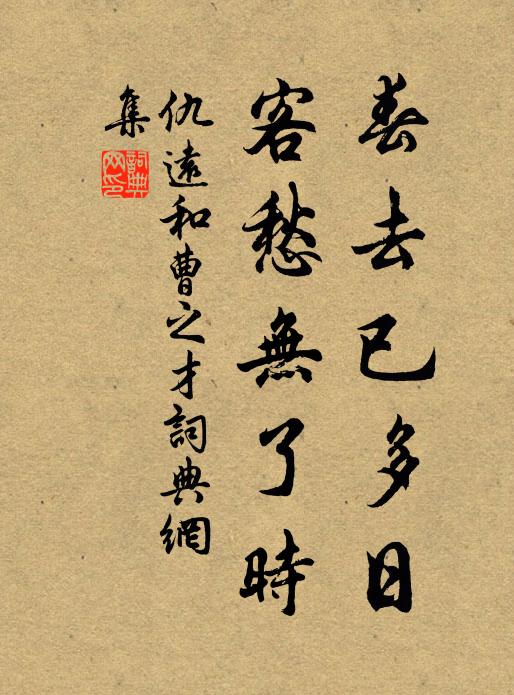 春去已多日
客愁無了時
仇遠和曹之才詞典網
集
詞典
网印